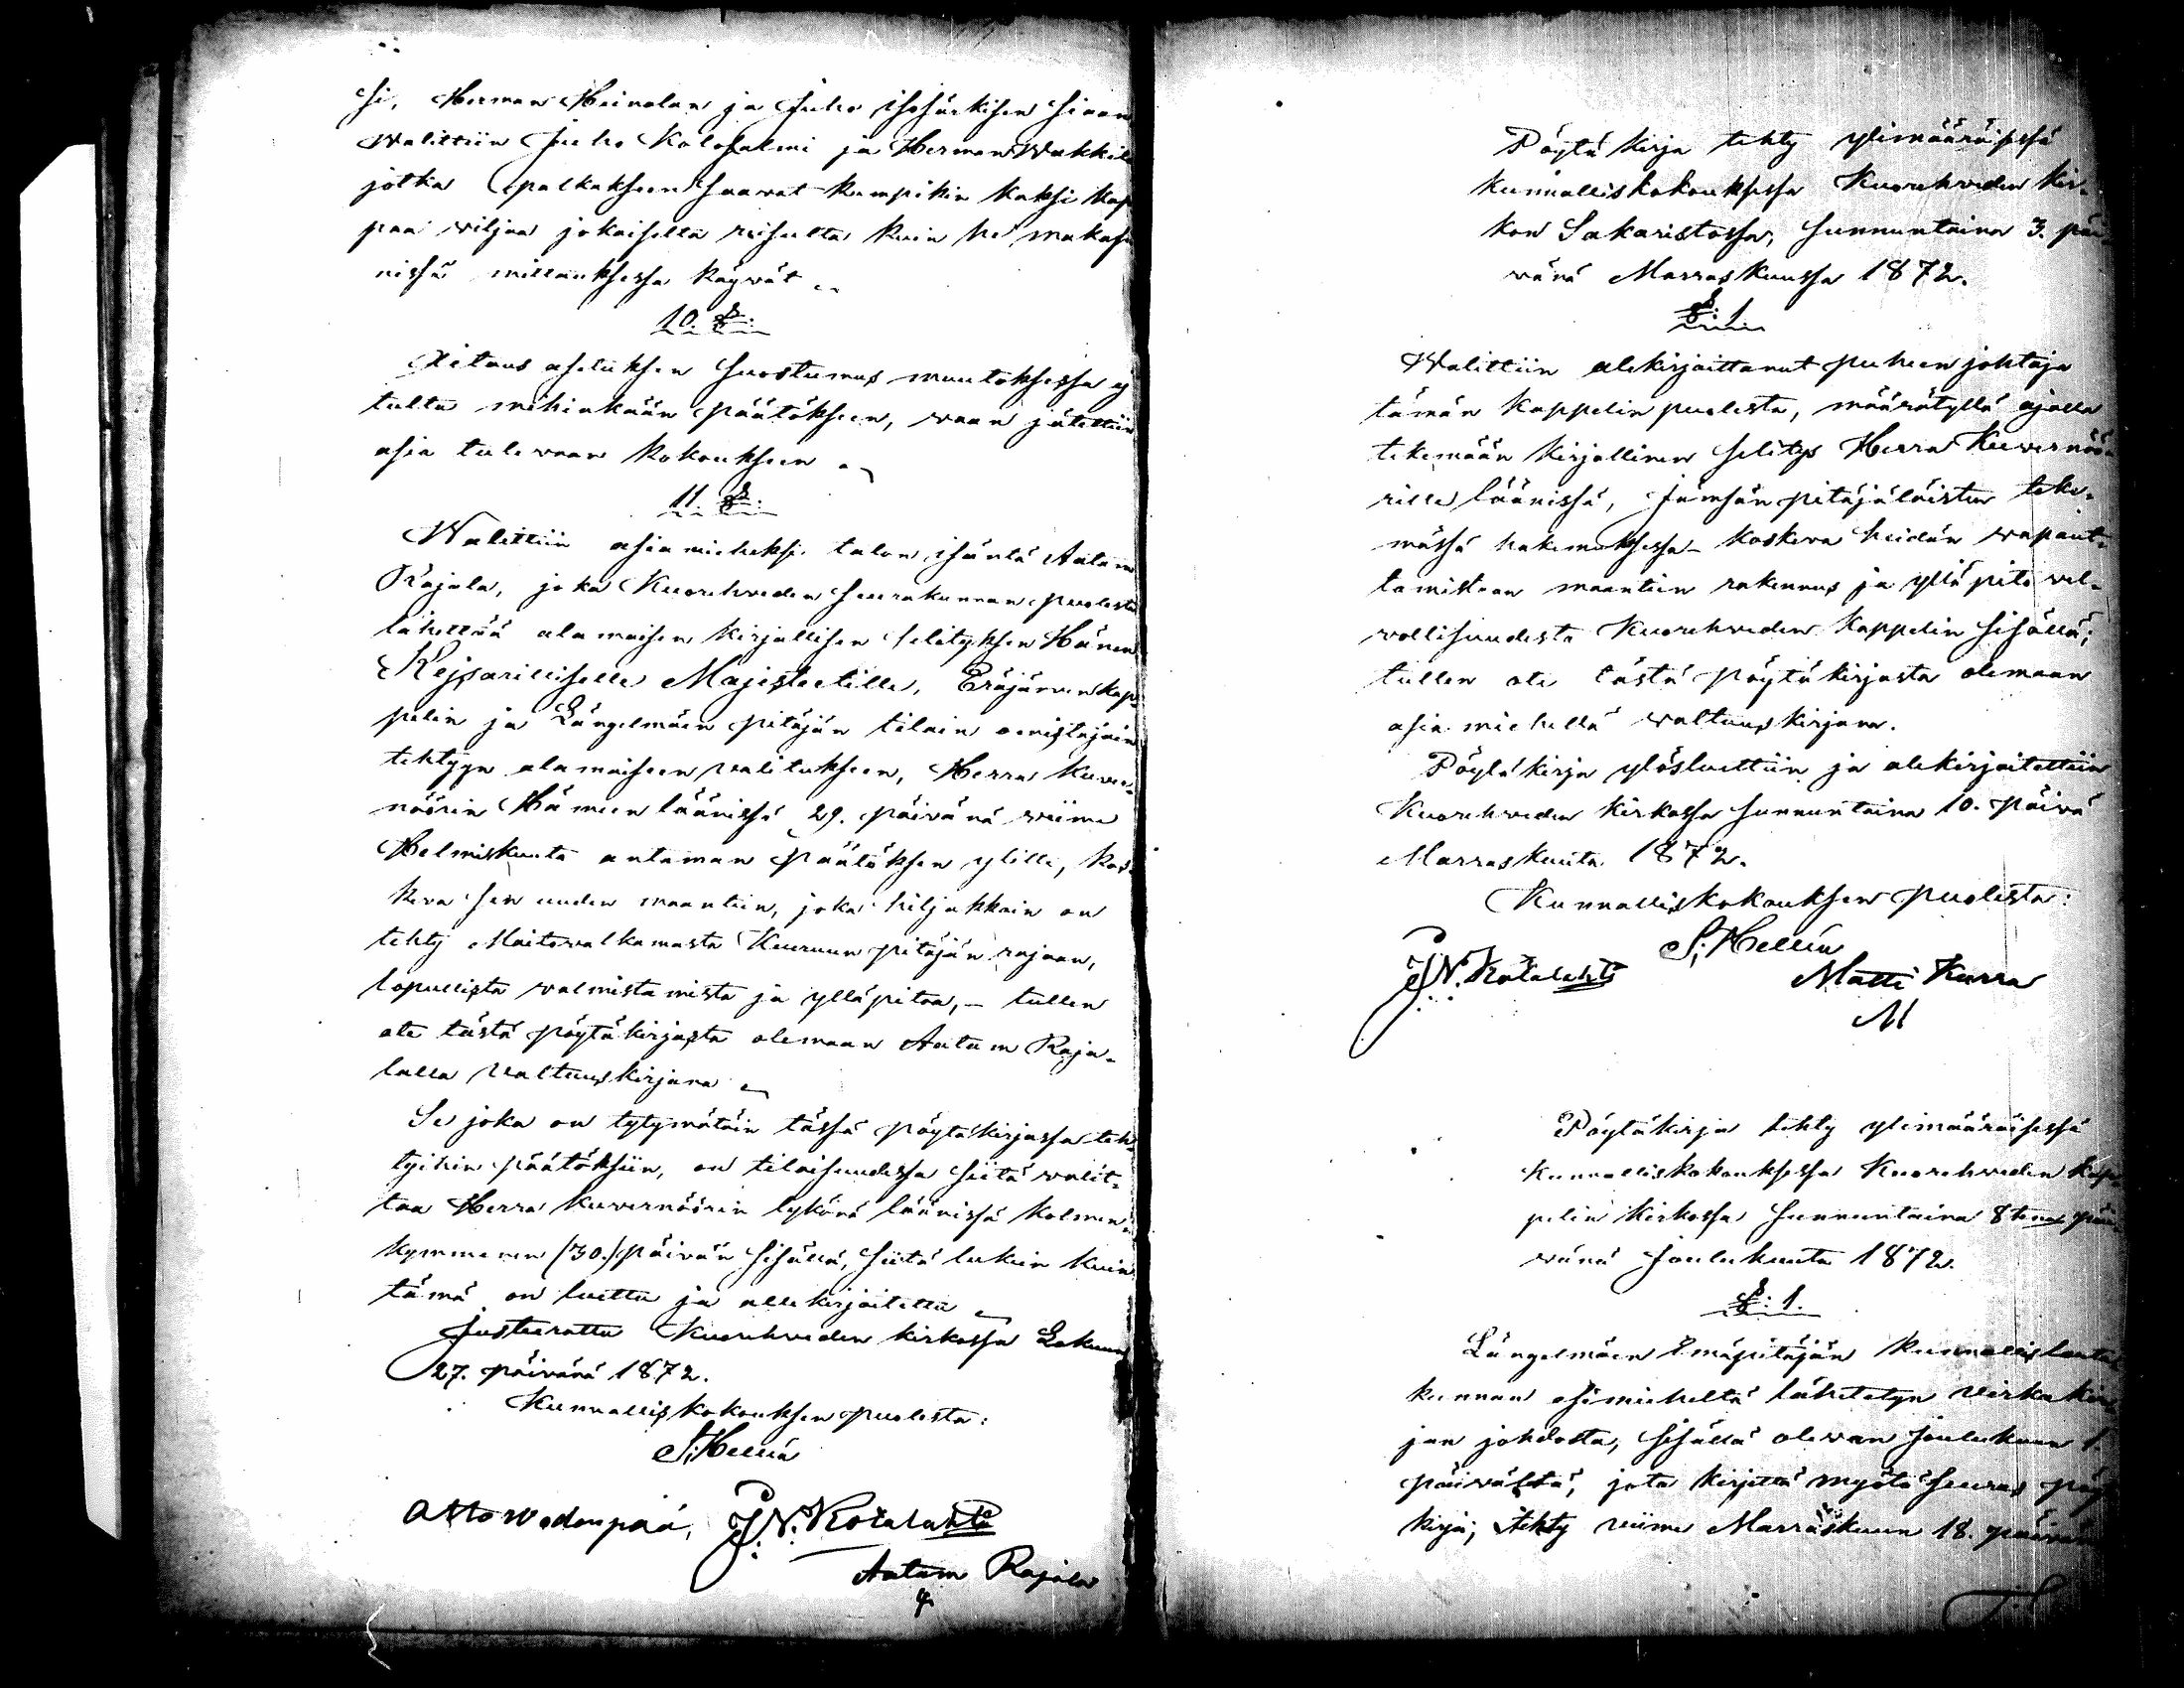 si, Herman Heinolan ja Juho Isosärkisen siaan
Walittiin Juho Kalosalmi ja Herman Wakkil
jotka palkakseen saawat kumpikin kaksi kap
paa wiljaa jokaiselta reisulta kuin he makasi
nissä mittauksessa käywät
10. §:
asetuksen suostumus muutoksessa ej
tultu mihinkään päätökseen, waan jätettiin
asia tulewaan kokoukseen
11. §:
Walittiin asiamieheksi talon isäntä Aatam
Rajala, joka Kuorehweden seurakunnan puolesta
lähettää alamaisen kirjallisen selityksen Hänen
Kejsarilliselle Majesteetille, Eräjärwen kap-
pelin ja Längelmäen pitäjän tilain omistajain
tehtyyn alamaiseen walitukseen, Herra Kuwer-
nöörin Hämeen läänissä 29. päiwänä wiime
Helmikuuta antaman päätöksen ylitse, kos-
kewa sen uuden maantien, joka hiljakkoin on
tehty Maitowalkamasta Keuruun pitäjän rajaan,
lopullista walmistamista ja ylläpitoa,- tullen
ote tästä pöytäkirjasta olemaan Aatam Raja-
lalla waltuuskirjana
Se joka on tytymätöin tässä pöytäkirjassa teh
tyihin päätöksiin, on tilaisuudessa siitä walit-
taa Herra Kuwernöörin tykönä läänissä kolmen-
kymmenen (30.) päiwän sisällä, siitä lukein kuin
tämä on luettu ja allekirjoitettu
Justeerattu Kuorehweden kirkossa Lokakuun
27. päiwänä 1872.
Kunnalliskokouksen puolesta:
S. Hellén
Otto Wedenpää, J.N. Kotalahti
Aatam Rajala
Pöytäkirja tehty ylimääräisessä
kunnalliskokouksessa Kuorehweden kir-
kon Sakaristossa, sunnuntaina 3. päi-
wänä Marraskuussa 1872.
§: 1
Walittiin alekirjoittanut puheenjohtaja
tämän kappelin puolesta, määrätyllä ajalla
tekemään kirjallinen selitys Herra Kuwernöö-
rille läänissä, Jämsän pitäjäläisten teke-
mässä hakemuksessa koskewa heidän wapaut-
tamistaan maantien rakennus ja ylläpito wel-
wollisuudesta Kuorehweden kappelin sisällä;
tullen ote tästä pöytäkirjasta olemaan
asiamiehellä waltuuskirjana.
Pöytäkirja ylösluettiin ja alekirjoitettiin
Kuorehweden kirkossa sunnuntaina 10. päiwä
Marraskuuta 1872.
Kunnalliskokouksen puolesta:
S. Hellén
J.N. Kotalahti Matti Kurra
M
Pöytäkirja tehty ylimääräisessä
kunnalliskokouksessa Kuorehweden kap-
pelin kirkossa sunnuntaina 8tena päi-
wänä Joulukuuta 1872.
§: 1.
Längelmäen Emäpitäjän kunnallislauta
kunnan esimieheltä lähetetyn wirkakir
jan johdosta, sisällä olewan Joulukuun 1.
päiwältä, jota kirjettä myötä seuras pöy
kirja, tehty wiime Marraskuun 18. päiwänä